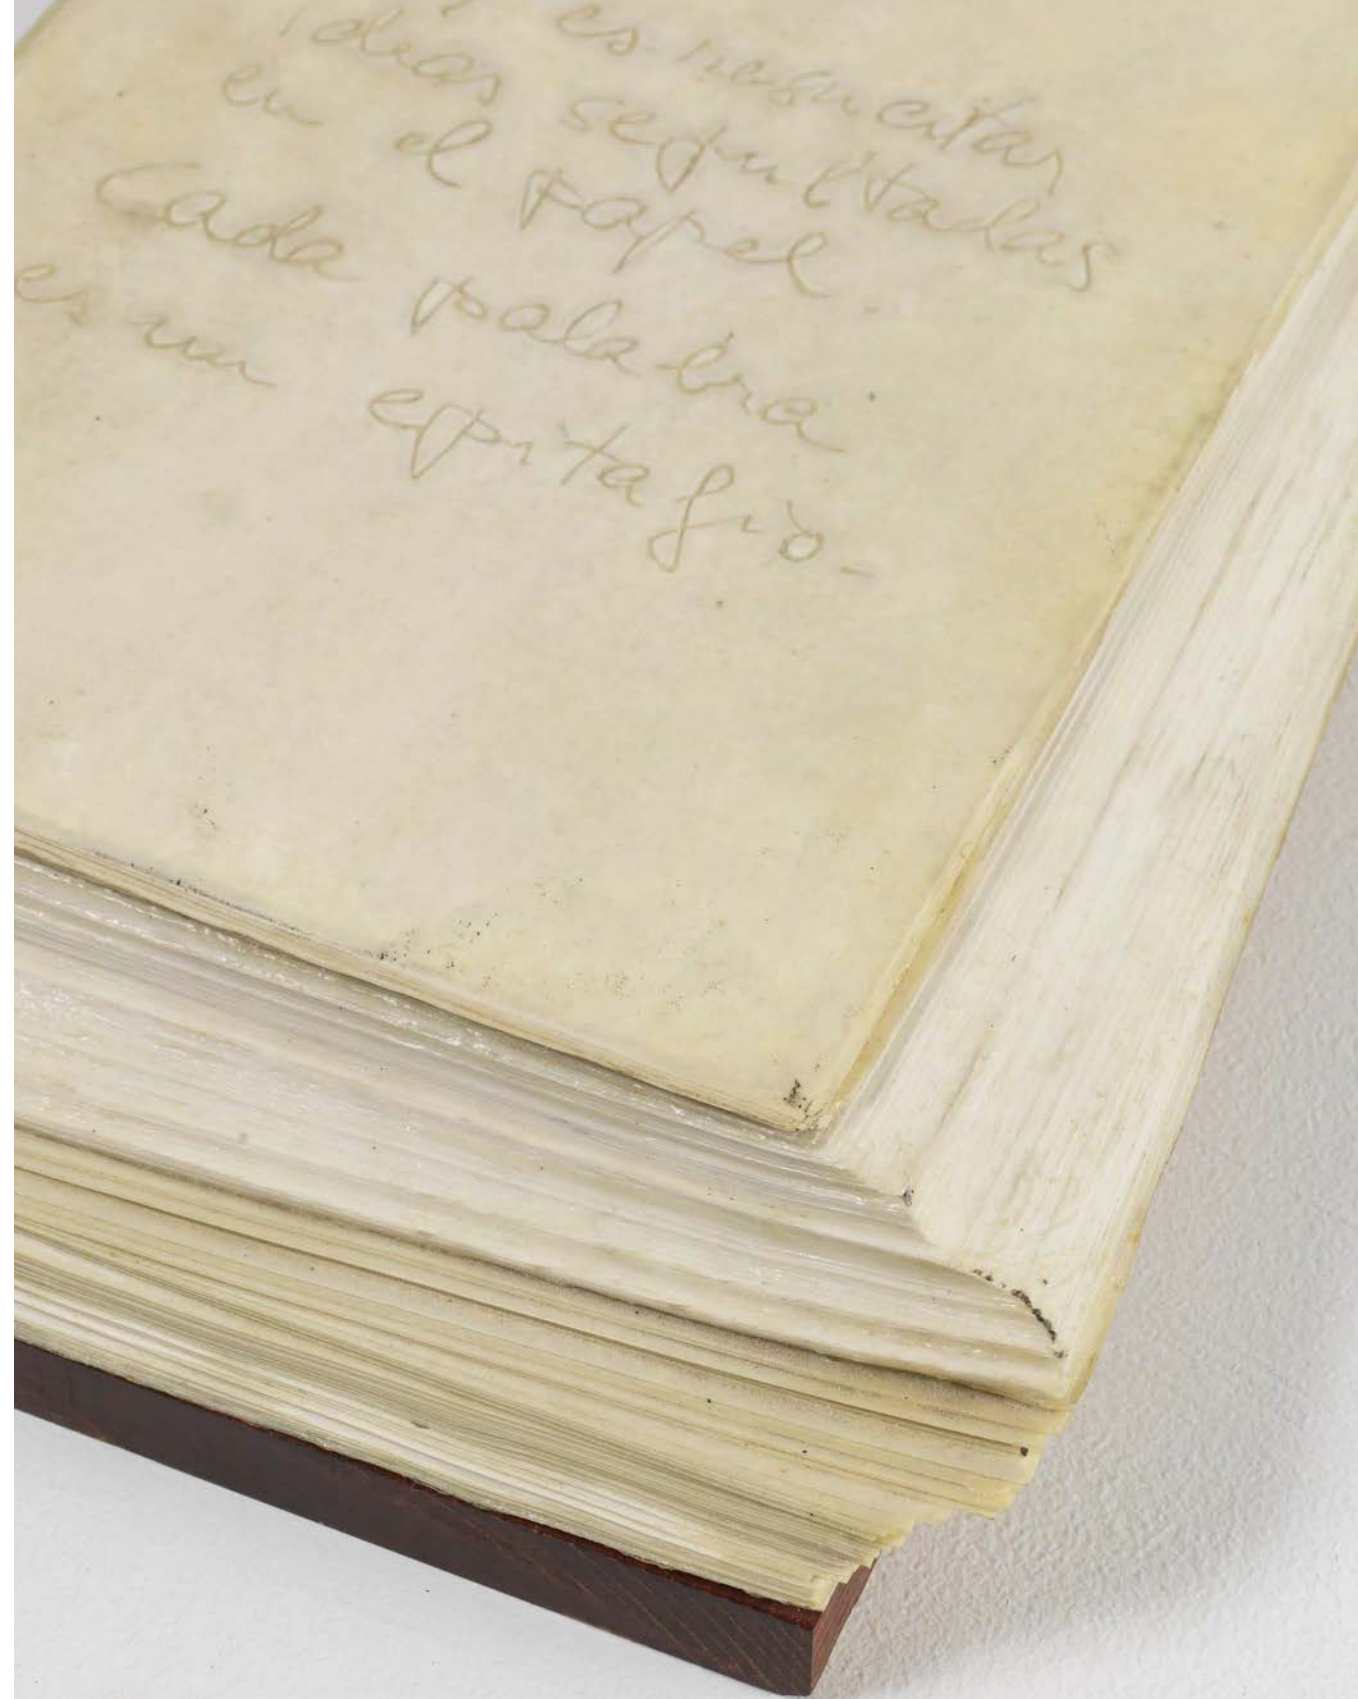 es resucitar
ideas sepultadas
en el papel.
Cada palabra
es un epitafio.